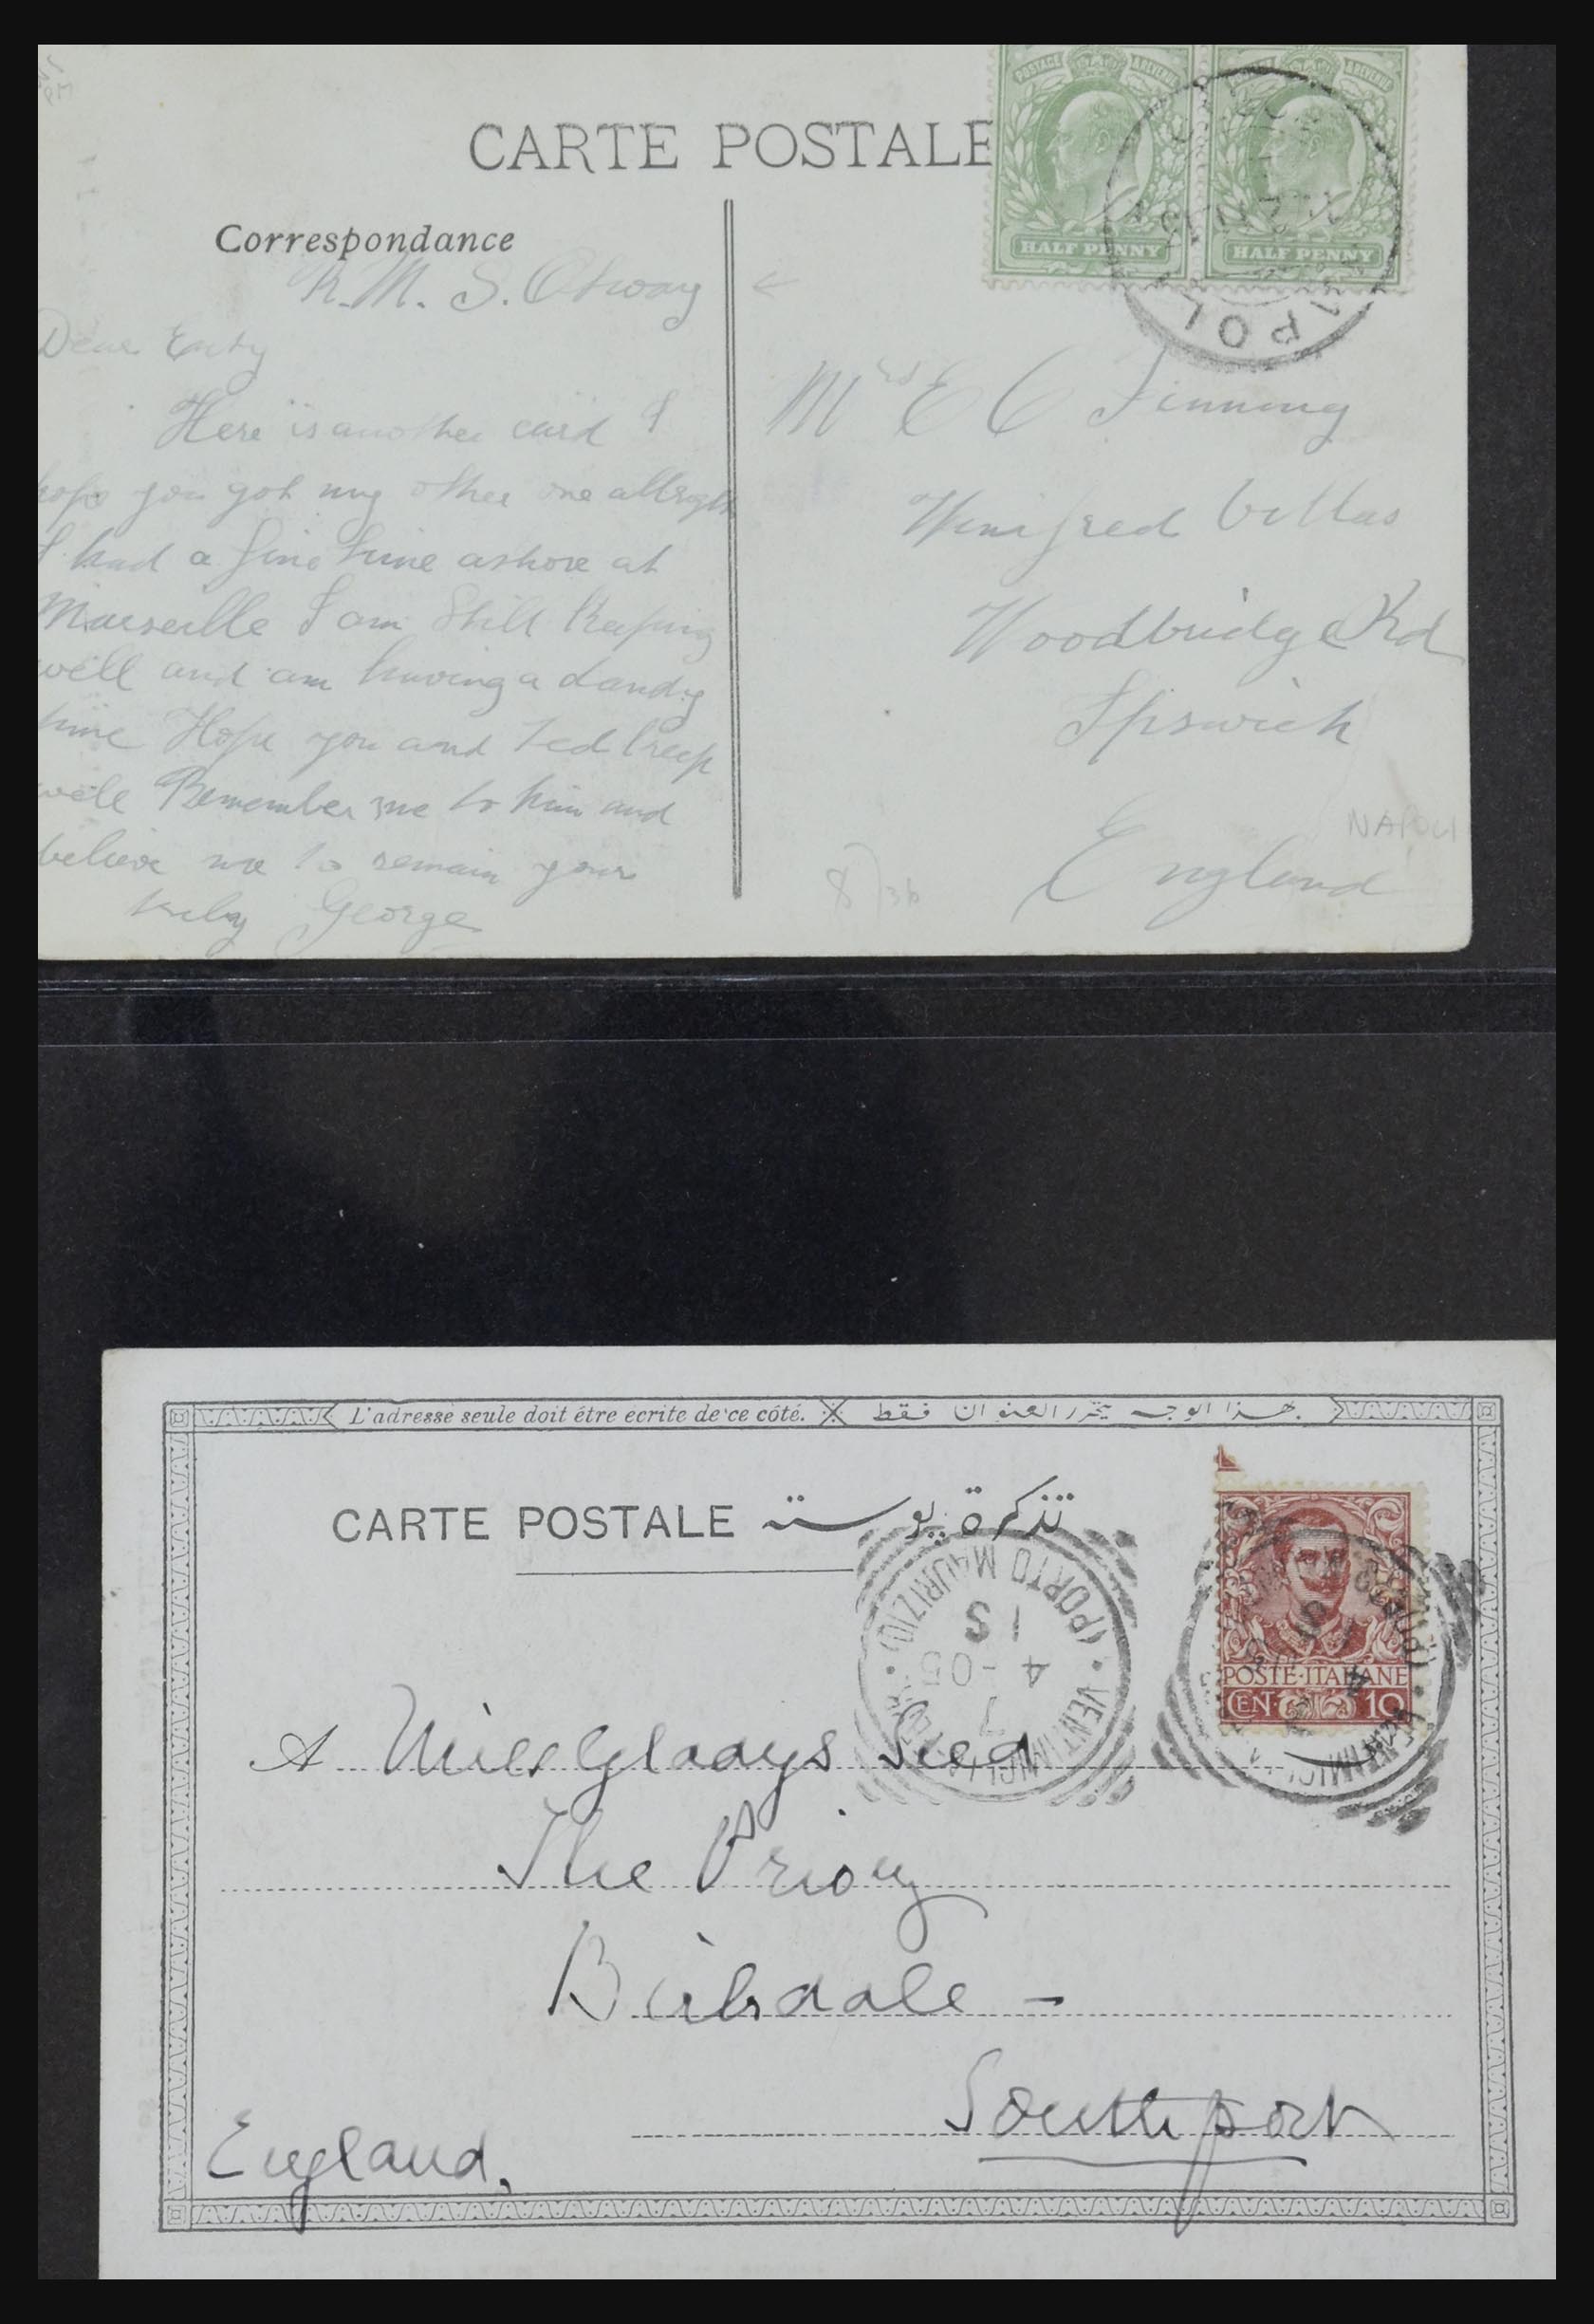 CARTE POSTALE
POSTAGE REVENUE
HALF PENNY
POSTAGE REVENUE
HALF PENNY
Correspondance
R.M. S. Otway
Dear
Here is another card I
hope you got my other one allright
I had a fine time ashore at
Marseille I am still keeping
well and am having a dandy
time Hope you and Ted keep
well Remember me to him and
believe me to remain yours
George
Mrs E C
Winifred Villas
Woodbridge Rd
Ipswich
England
NAPOLI
L'adresse seule doit étre écrite de ce côté. بهذا الوجه يحرر العنوان فقط
CARTE POSTALE تذكرة پوسته
(PORTO MAURIZIO)
1 S
4 - 05
7
VENTIMIGLIA
POSTE·ITALIANE
CEN· 10
A Miss Gladys
The Priory
Birkdale -
Southport
England.